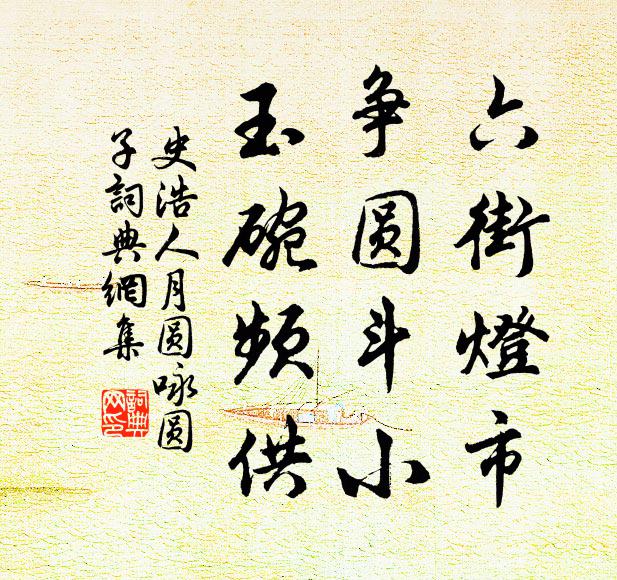 六街燈市
争圆斗小
玉碗频供
史浩人月圆咏圆
子詞典網集
詞典
网印